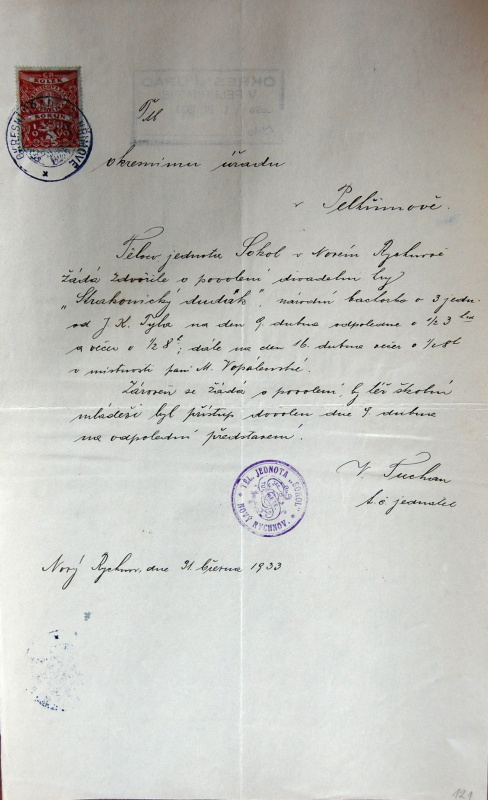 KOLEK
KORUN
Tit
okresnímu úřadu
v Pelhřimově.
Tělocv. jednota Sokol v Novém Rychnově
žádá zdvořile o povolení divadelní hry
„Strakonický dudák", národní báchorka o 3 jedn.
od J. K. Tyla na den 9. dubna odpoledne o 1/2 3 hod
a večer o 1/2 8 h; dále na den 16. dubna večer o 1/2 8 h
v místnosti paní M. Vopálenské.
Zároveň se žádá o povolení by též školní
mládeži byl přístup dovolen dne 9. dubna
na odpolední představení.
V. Tuchan
t. č. jednatel
TĚL. JEDNOTA „SOKOL"
NOVÝ RYCHNOV.
Nový Rychnov, dne 31. března 1933
121